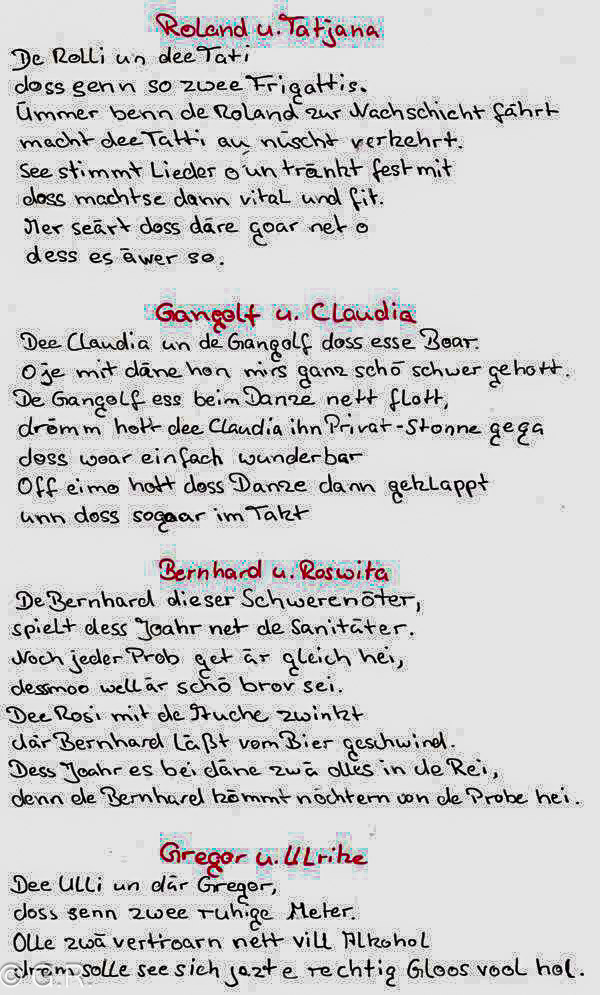 Roland u. Tatjana
De Rolli un dee Tati
doss senn so zwee Frigattis.
Ümmer benn de Roland zur Nachschicht fährt
macht dee Tatti au nüscht verkehrt.
See stimmt Lieder o un tränkt fest mit
doss machtse dann vital und fit.
Mer seärt doss däre goar net o
dess es äwer so.
Gangolf u. Claudia
Dee Claudia un de Gangolf doss esse Boar.
Oje mit däne hon mirs ganz schö schwer gehott.
De Gangolf ess beim Danze nett flott,
drömm hott dee Claudia ihn Privat-Stonne gega
doss woar einfach wunderbar
Off eimo hott doss Danze dann geklappt
unn doss sogaar im Takt
Bernhard u. Roswita
De Bernhard dieser Schwerenöter,
spielt dess Joahr net de Sanitäter.
Noch jeder Prob get är gleich hei,
dessmoo well är schö brov sei.
Dee Rosi mit de Auche zwinkt
där Bernhard läßt vom Bier geschwind.
Dess Joahr es bei däne zwä olles in de Rei,
denn de Bernhard kömmt nöchtern von de Probe hei.
Gregor u. Ulrike
Dee Ulli un där Gregor,
doss senn zwee ruhige Meter.
Olle zwä vertroarn nett vill Alkohol
dröm solle see sich jazt e rechtig Gloos vool hol.
© G.R.